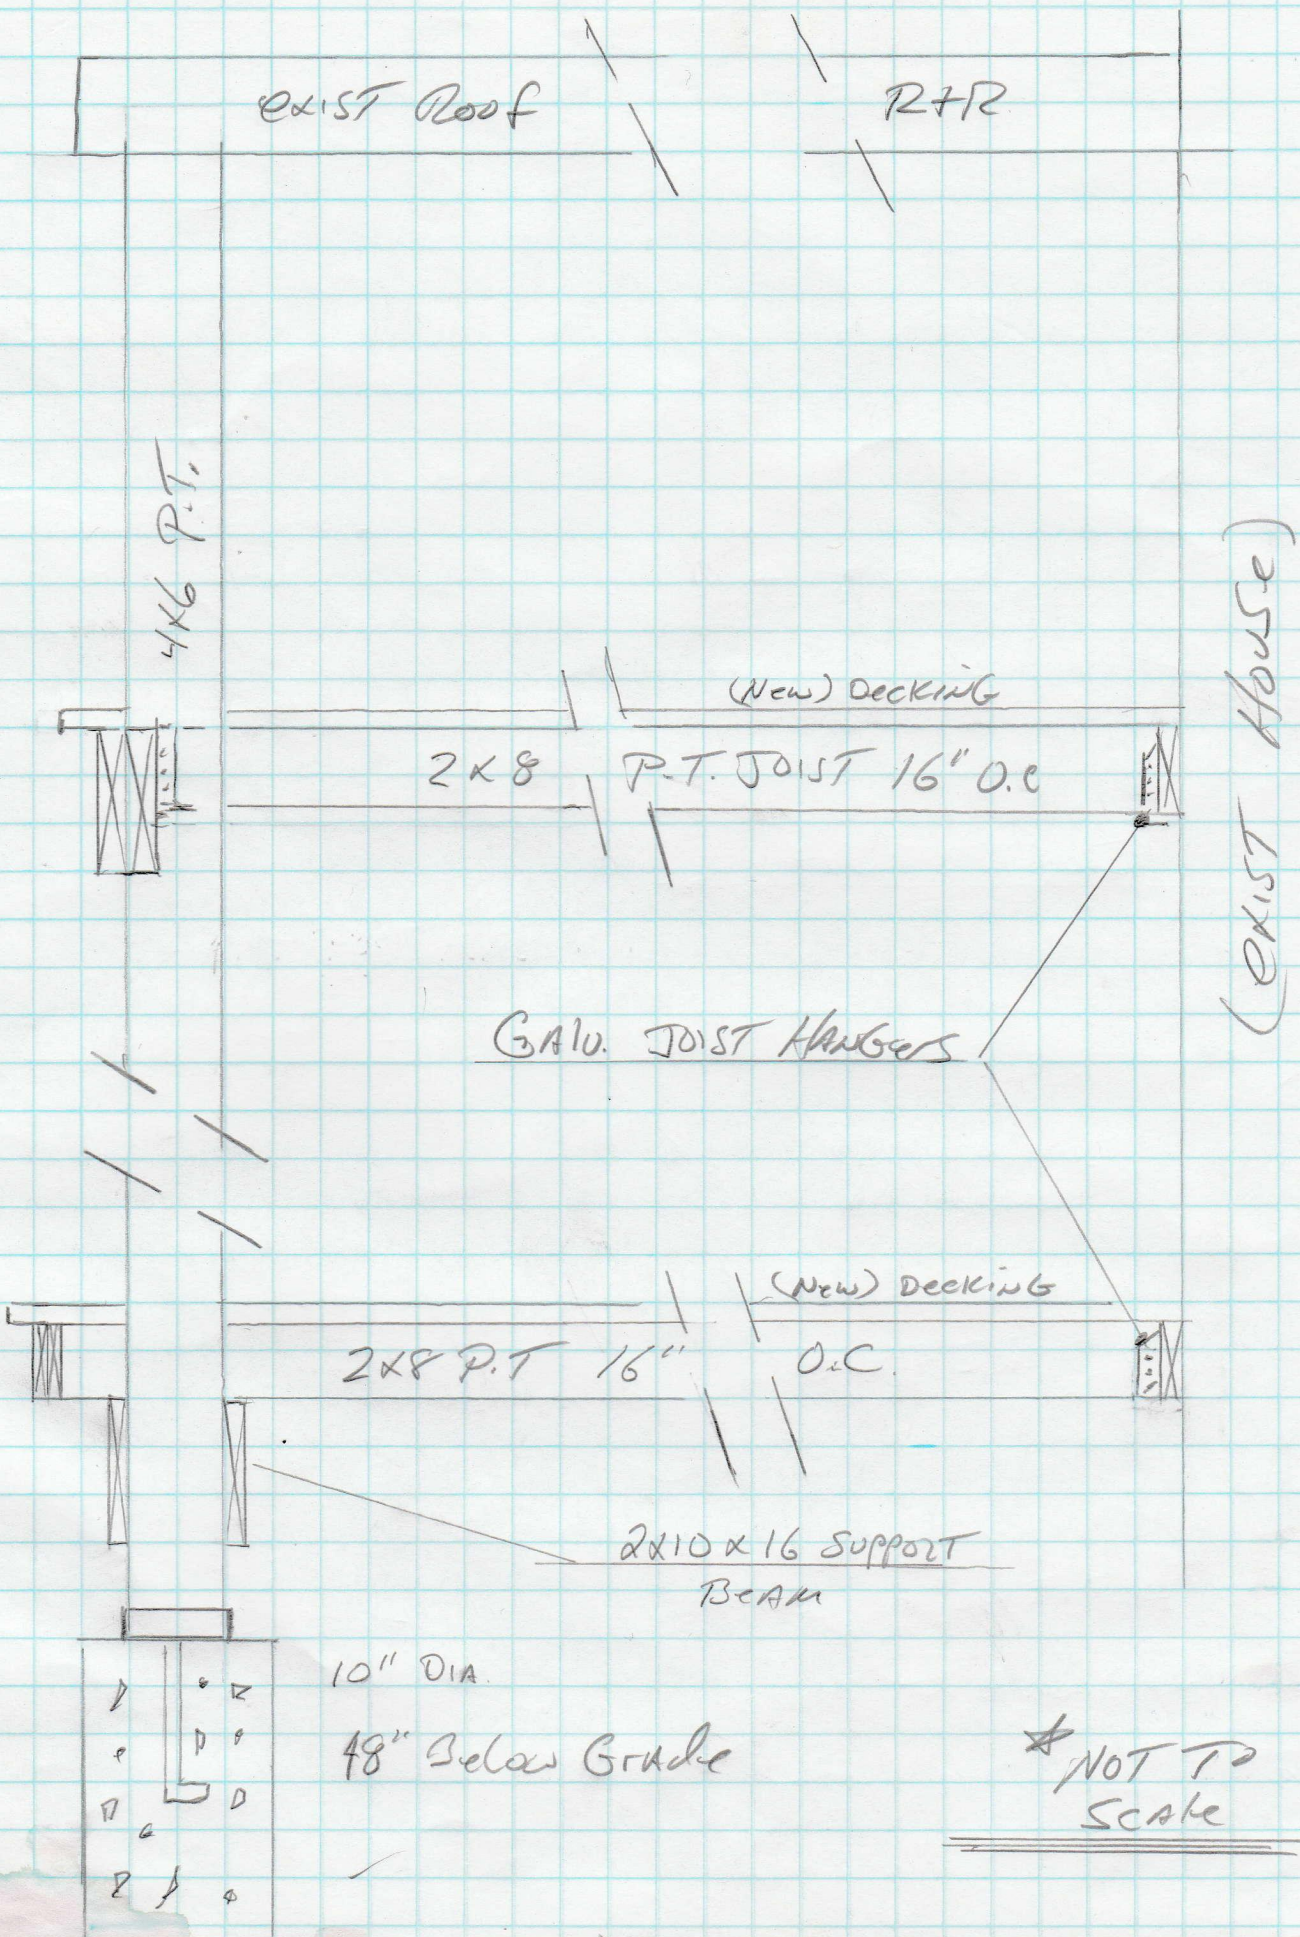 exist Roof
RFR
4x6 P.T.
(New) Decking
2x8 P.T. JOIST 16" O.C
(exist House)
GAlv. JOIST HANGers
(New) Decking
2x8 P.T 16" O.C.
2x10 x 16 Support
BeAm
10" DIA.
48" Below GrAde
* NOT To
ScAle